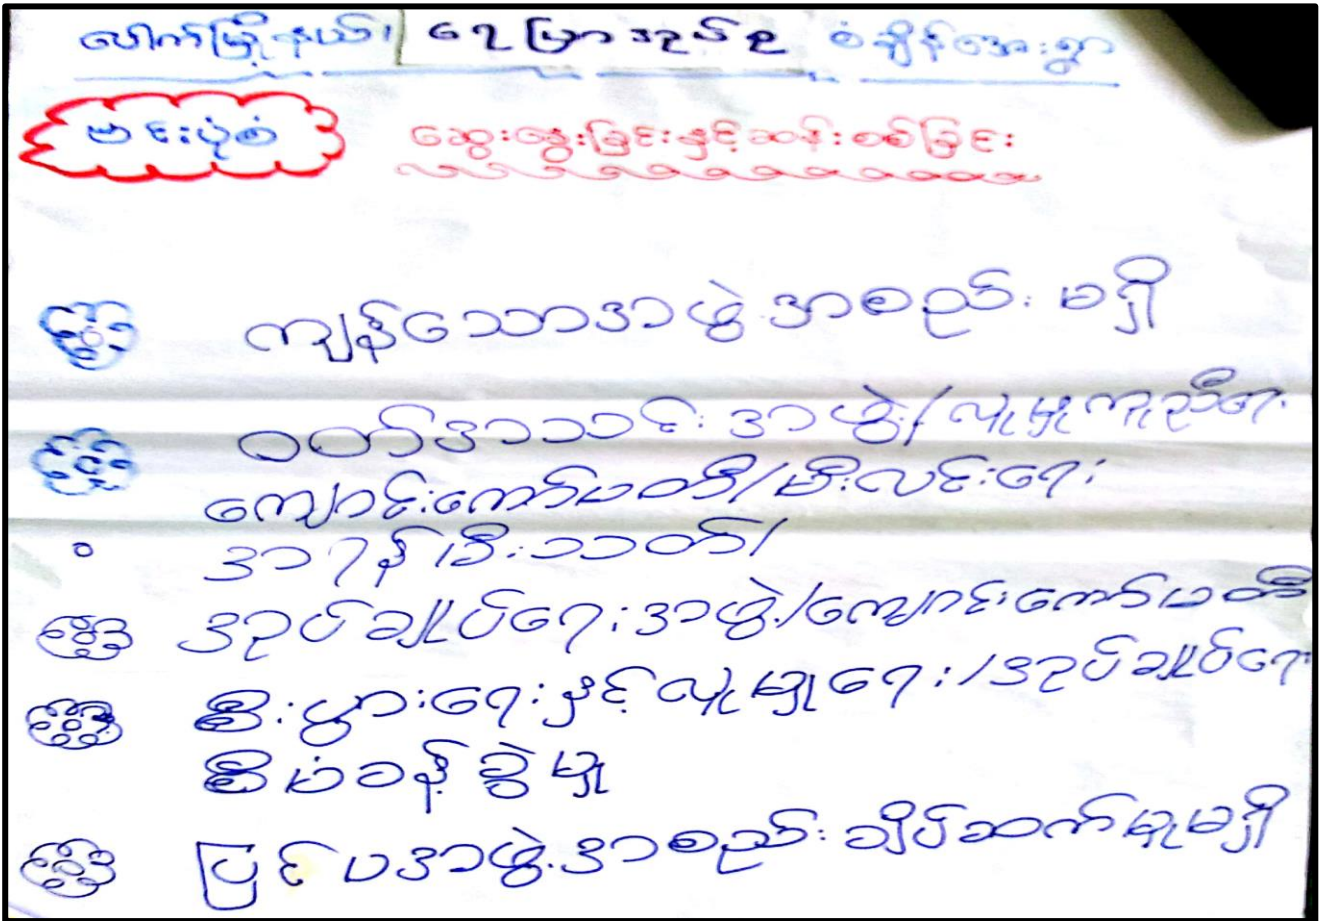 ပေါက်မြို့နယ်၊ ရေမြာအုပ်စု စံချိန်အေးရွာ
ဗင်းပုံစံ ဆွေးနွေးခြင်းနှင့်ဆန်းစစ်ခြင်း
ကျန်သောအဖွဲ့အစည်း မရှိ
ဝတ်အသင်းအဖွဲ့/လူမှုကူညီရေး
ကျောင်းကော်မတီ/မီးလင်းရေး
အရန်မီးသတ်/
အုပ်ချုပ်ရေးအဖွဲ့/ကျောင်းကော်မတီ
စီးပွားရေးနှင့်လူမှုရေး/အုပ်ချုပ်ရေး
စီမံခန့်ခွဲမှု
ပြင်ပအဖွဲ့အစည်းချိပ်ဆက်မှုမရှိ